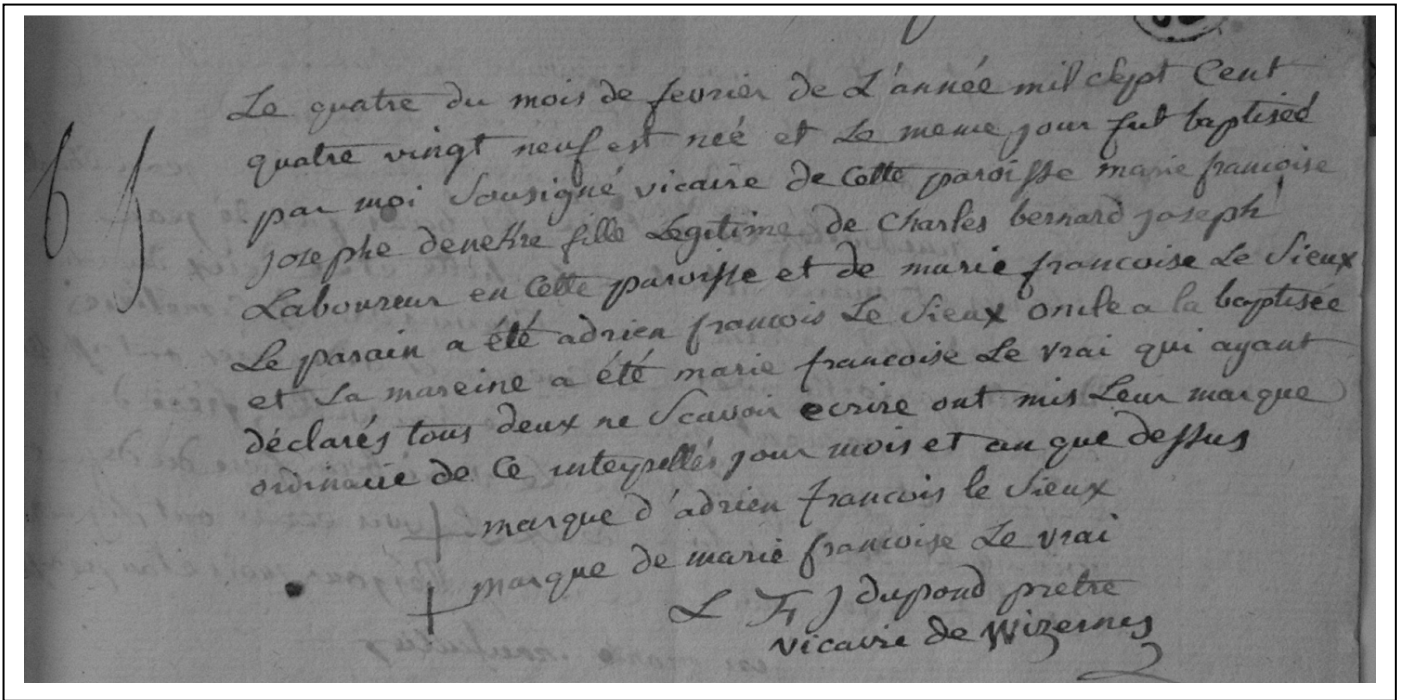 Le quatre du mois de fevrier de L'année mil sept Cent
quatre vingt neuf est neé et le meme jour fut baptiseé
par moi Sousigné vicaire de Cette paroisse marie francoise
josephe denettre fille Legitime de Charles bernard joseph
Laboureur en Cette paroisse et de marie francoise Le Sieux
Le parain a été adrien francois Le Sieux oncle a la baptisée
et La mareine a été marie francoise Le vrai qui ayant
déclarés tous deux ne Scavoir ecrire ont mis Leur marque
ordinaire de Ce interpellés jour mois et an que dessus
marque d'adrien francois le Sieux
marque de marie francoise Le vrai
L F J dupond pretre
vicaire de Wizernes